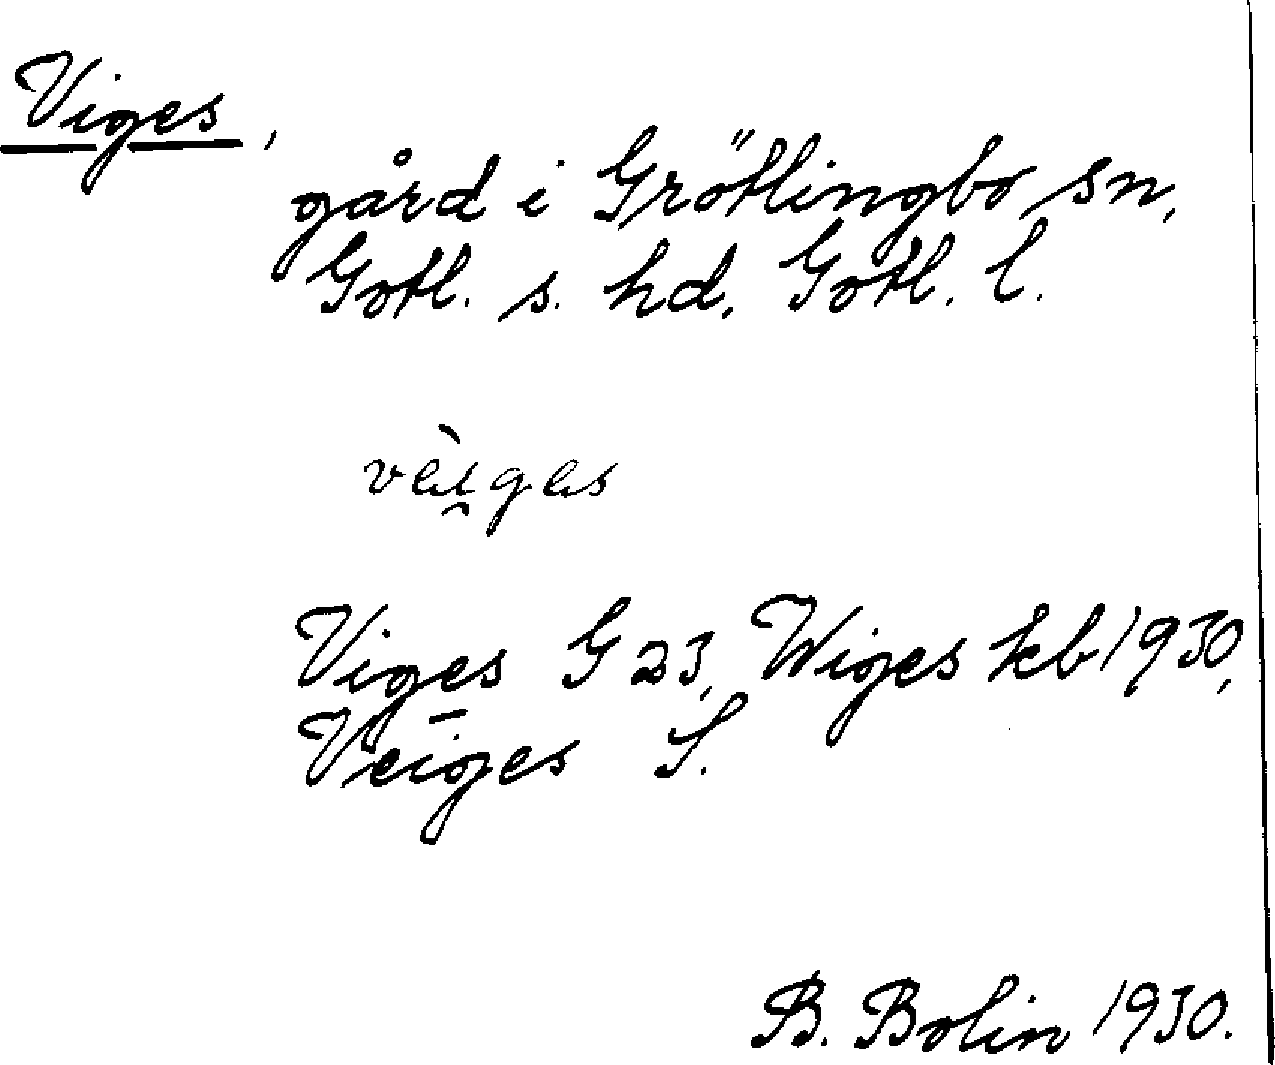 Viges,
gård i Grötlingbo sn,
Gotl. s. hd, Gotl. l.
vèi̯ges
Viges G 23, Wiges kb 1930,
Veiges S.
B. Bolin 1930.